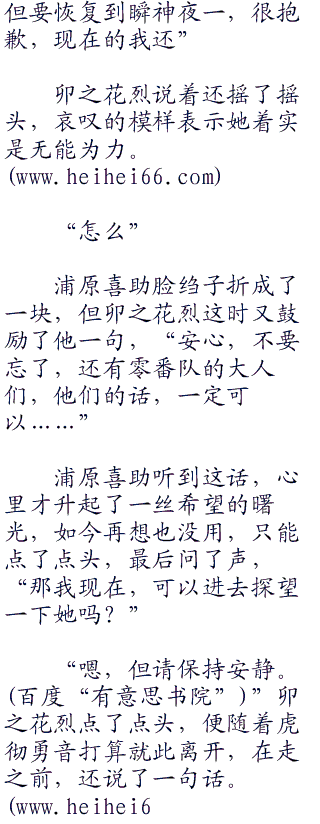 但要恢复到瞬神夜一，很抱
歉，现在的我还”
卯之花烈说着还摇了摇
头，哀叹的模样表示她着实
是无能为力。
(www.heihei66.com)
“怎么”
浦原喜助脸绉子折成了
一块，但卯之花烈这时又鼓
励了他一句，“安心，不要
忘了，还有零番队的大人
们，他们的话，一定可
以……”
浦原喜助听到这话，心
里才升起了一丝希望的曙
光，如今再想也没用，只能
点了点头，最后问了声，
“那我现在，可以进去探望
一下她吗？”
“嗯，但请保持安静。
(百度“有意思书院”)”卯
之花烈点了点头，便随着虎
彻勇音打算就此离开，在走
之前，还说了一句话。
(www.heihei6